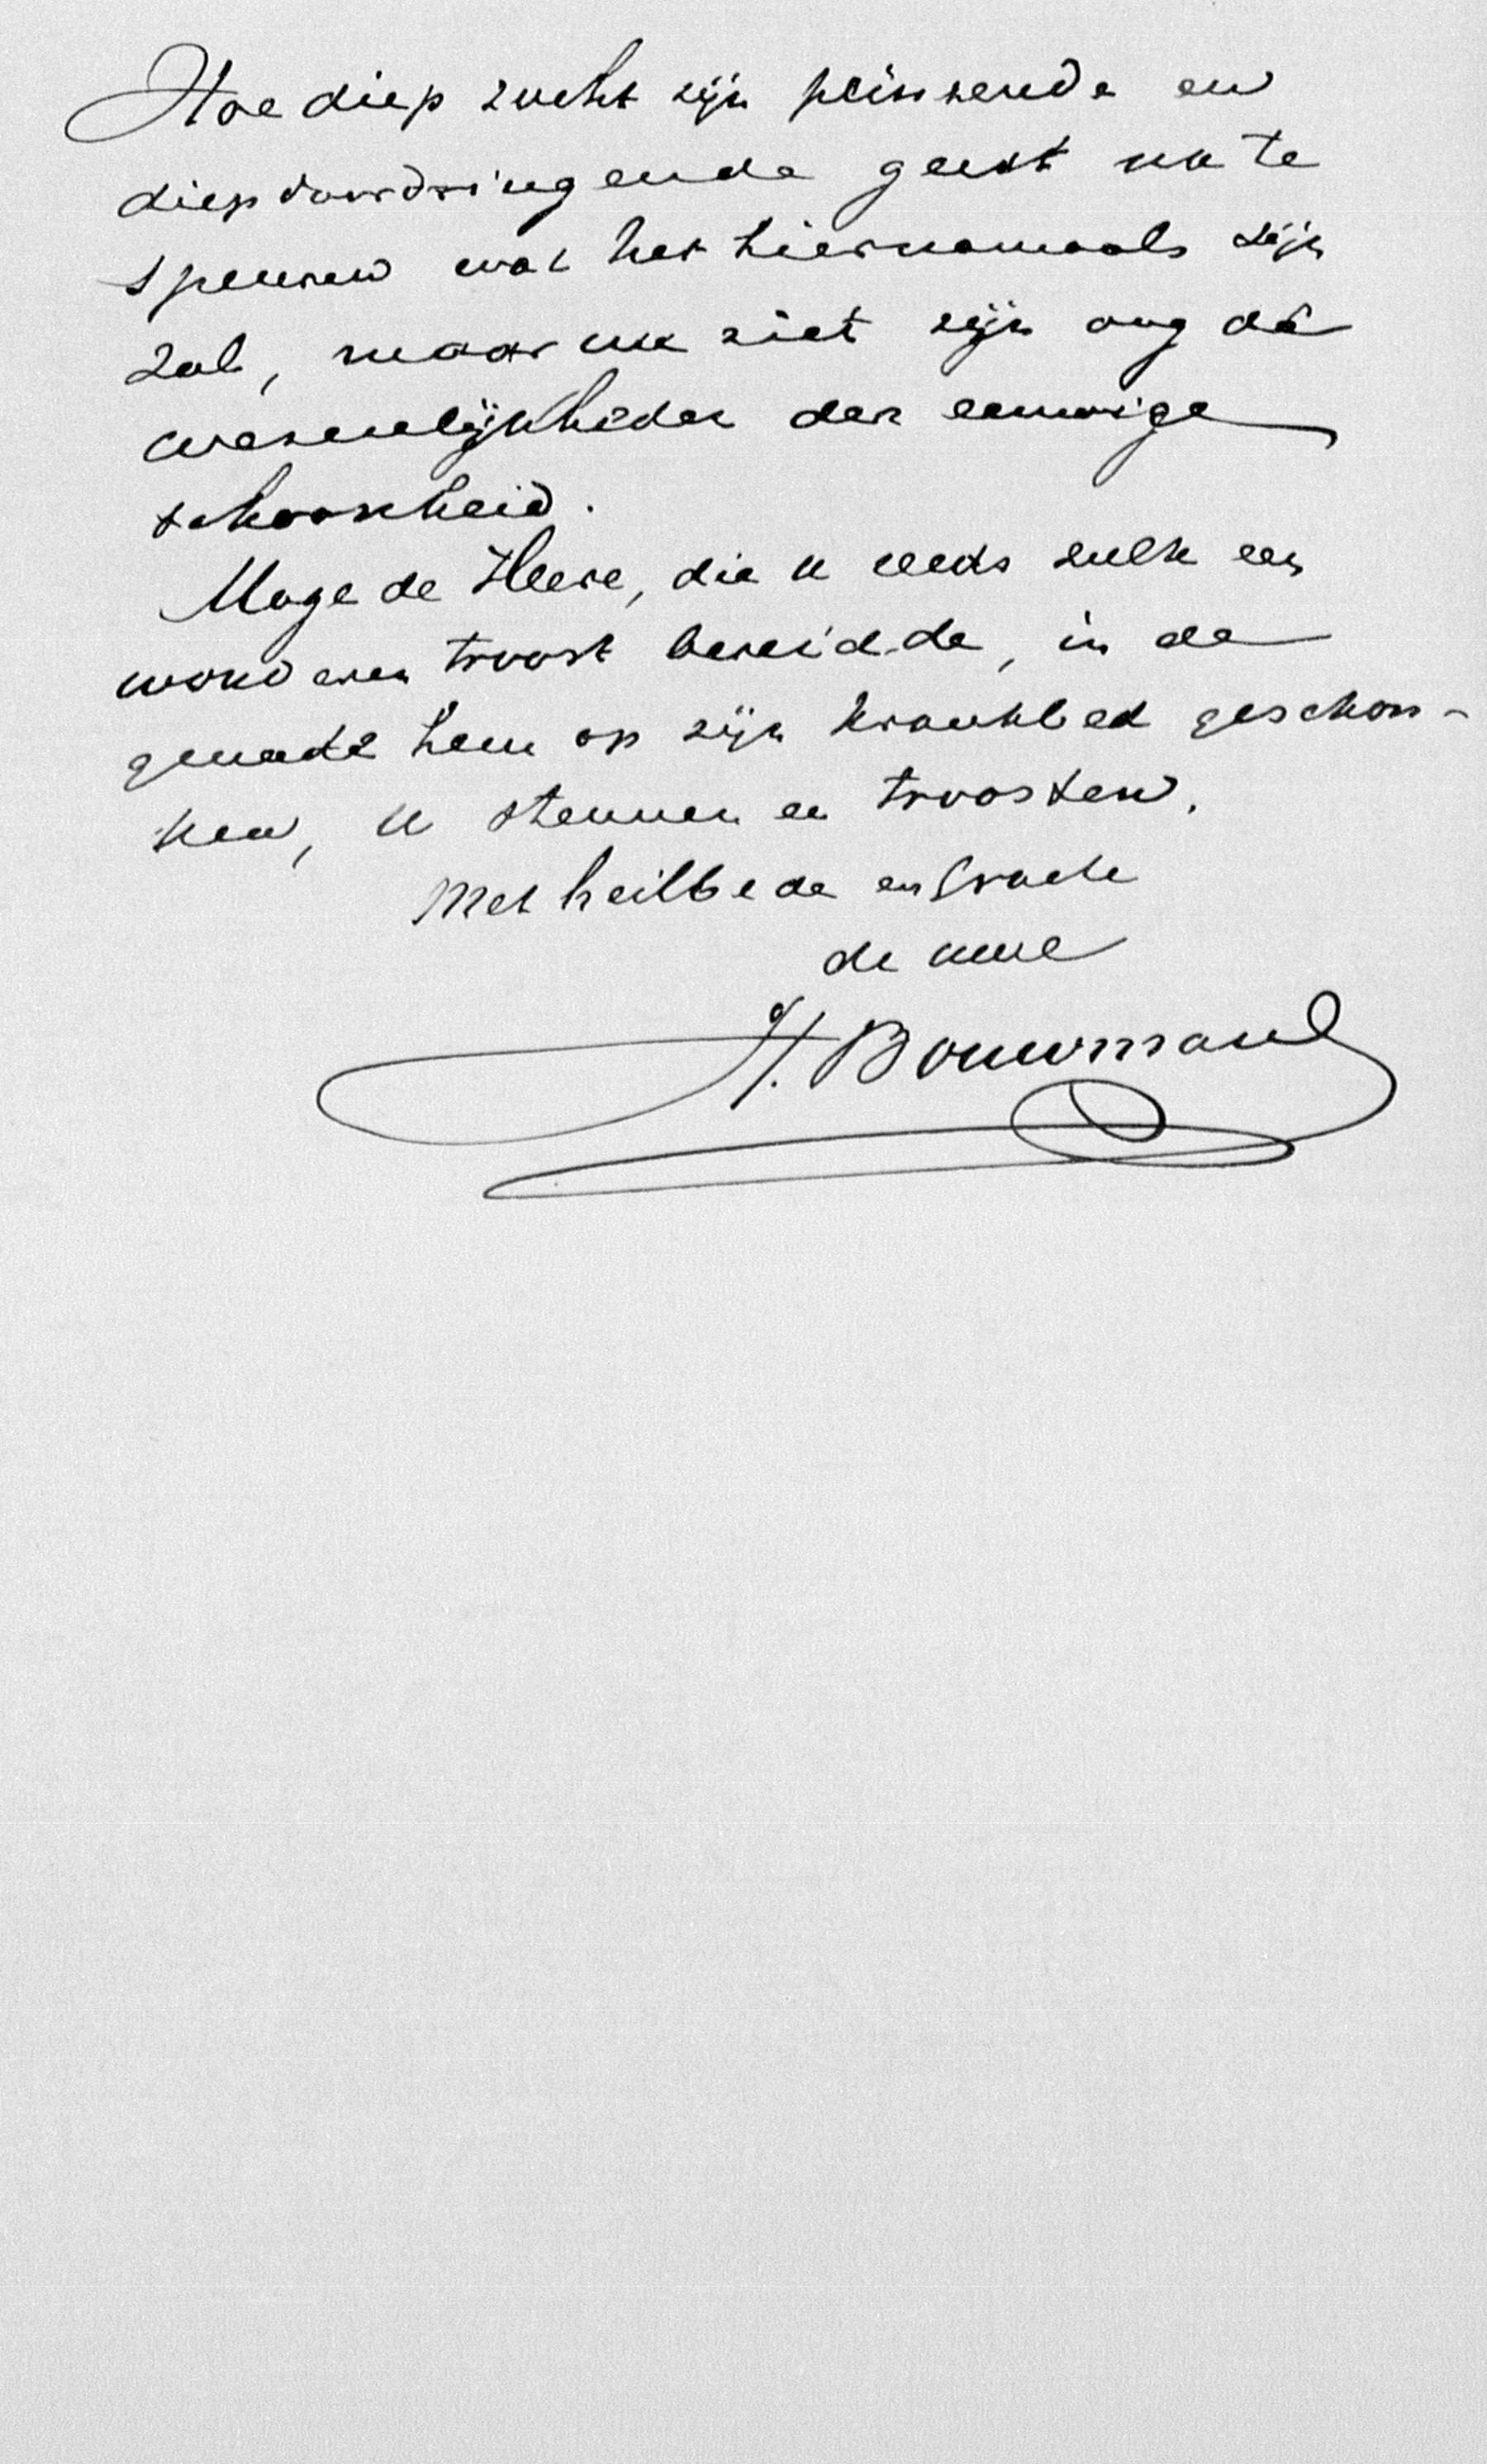 Hoe diep zocht zijn peinzende en
diepdoordringende geest na te
speuren wat het hiernamaals zijn
zal, maar nu ziet zijn oog de
wezenlijkheden der eeuwige
schoonheid.
Moge de Heere, die u reeds zulk een
wonderen troost bereidde, in de
genade hem op zijn krankbed geschon-
ken, u steunen en troosten.
Met heilbede en groete
de uwe
H. Bouwman